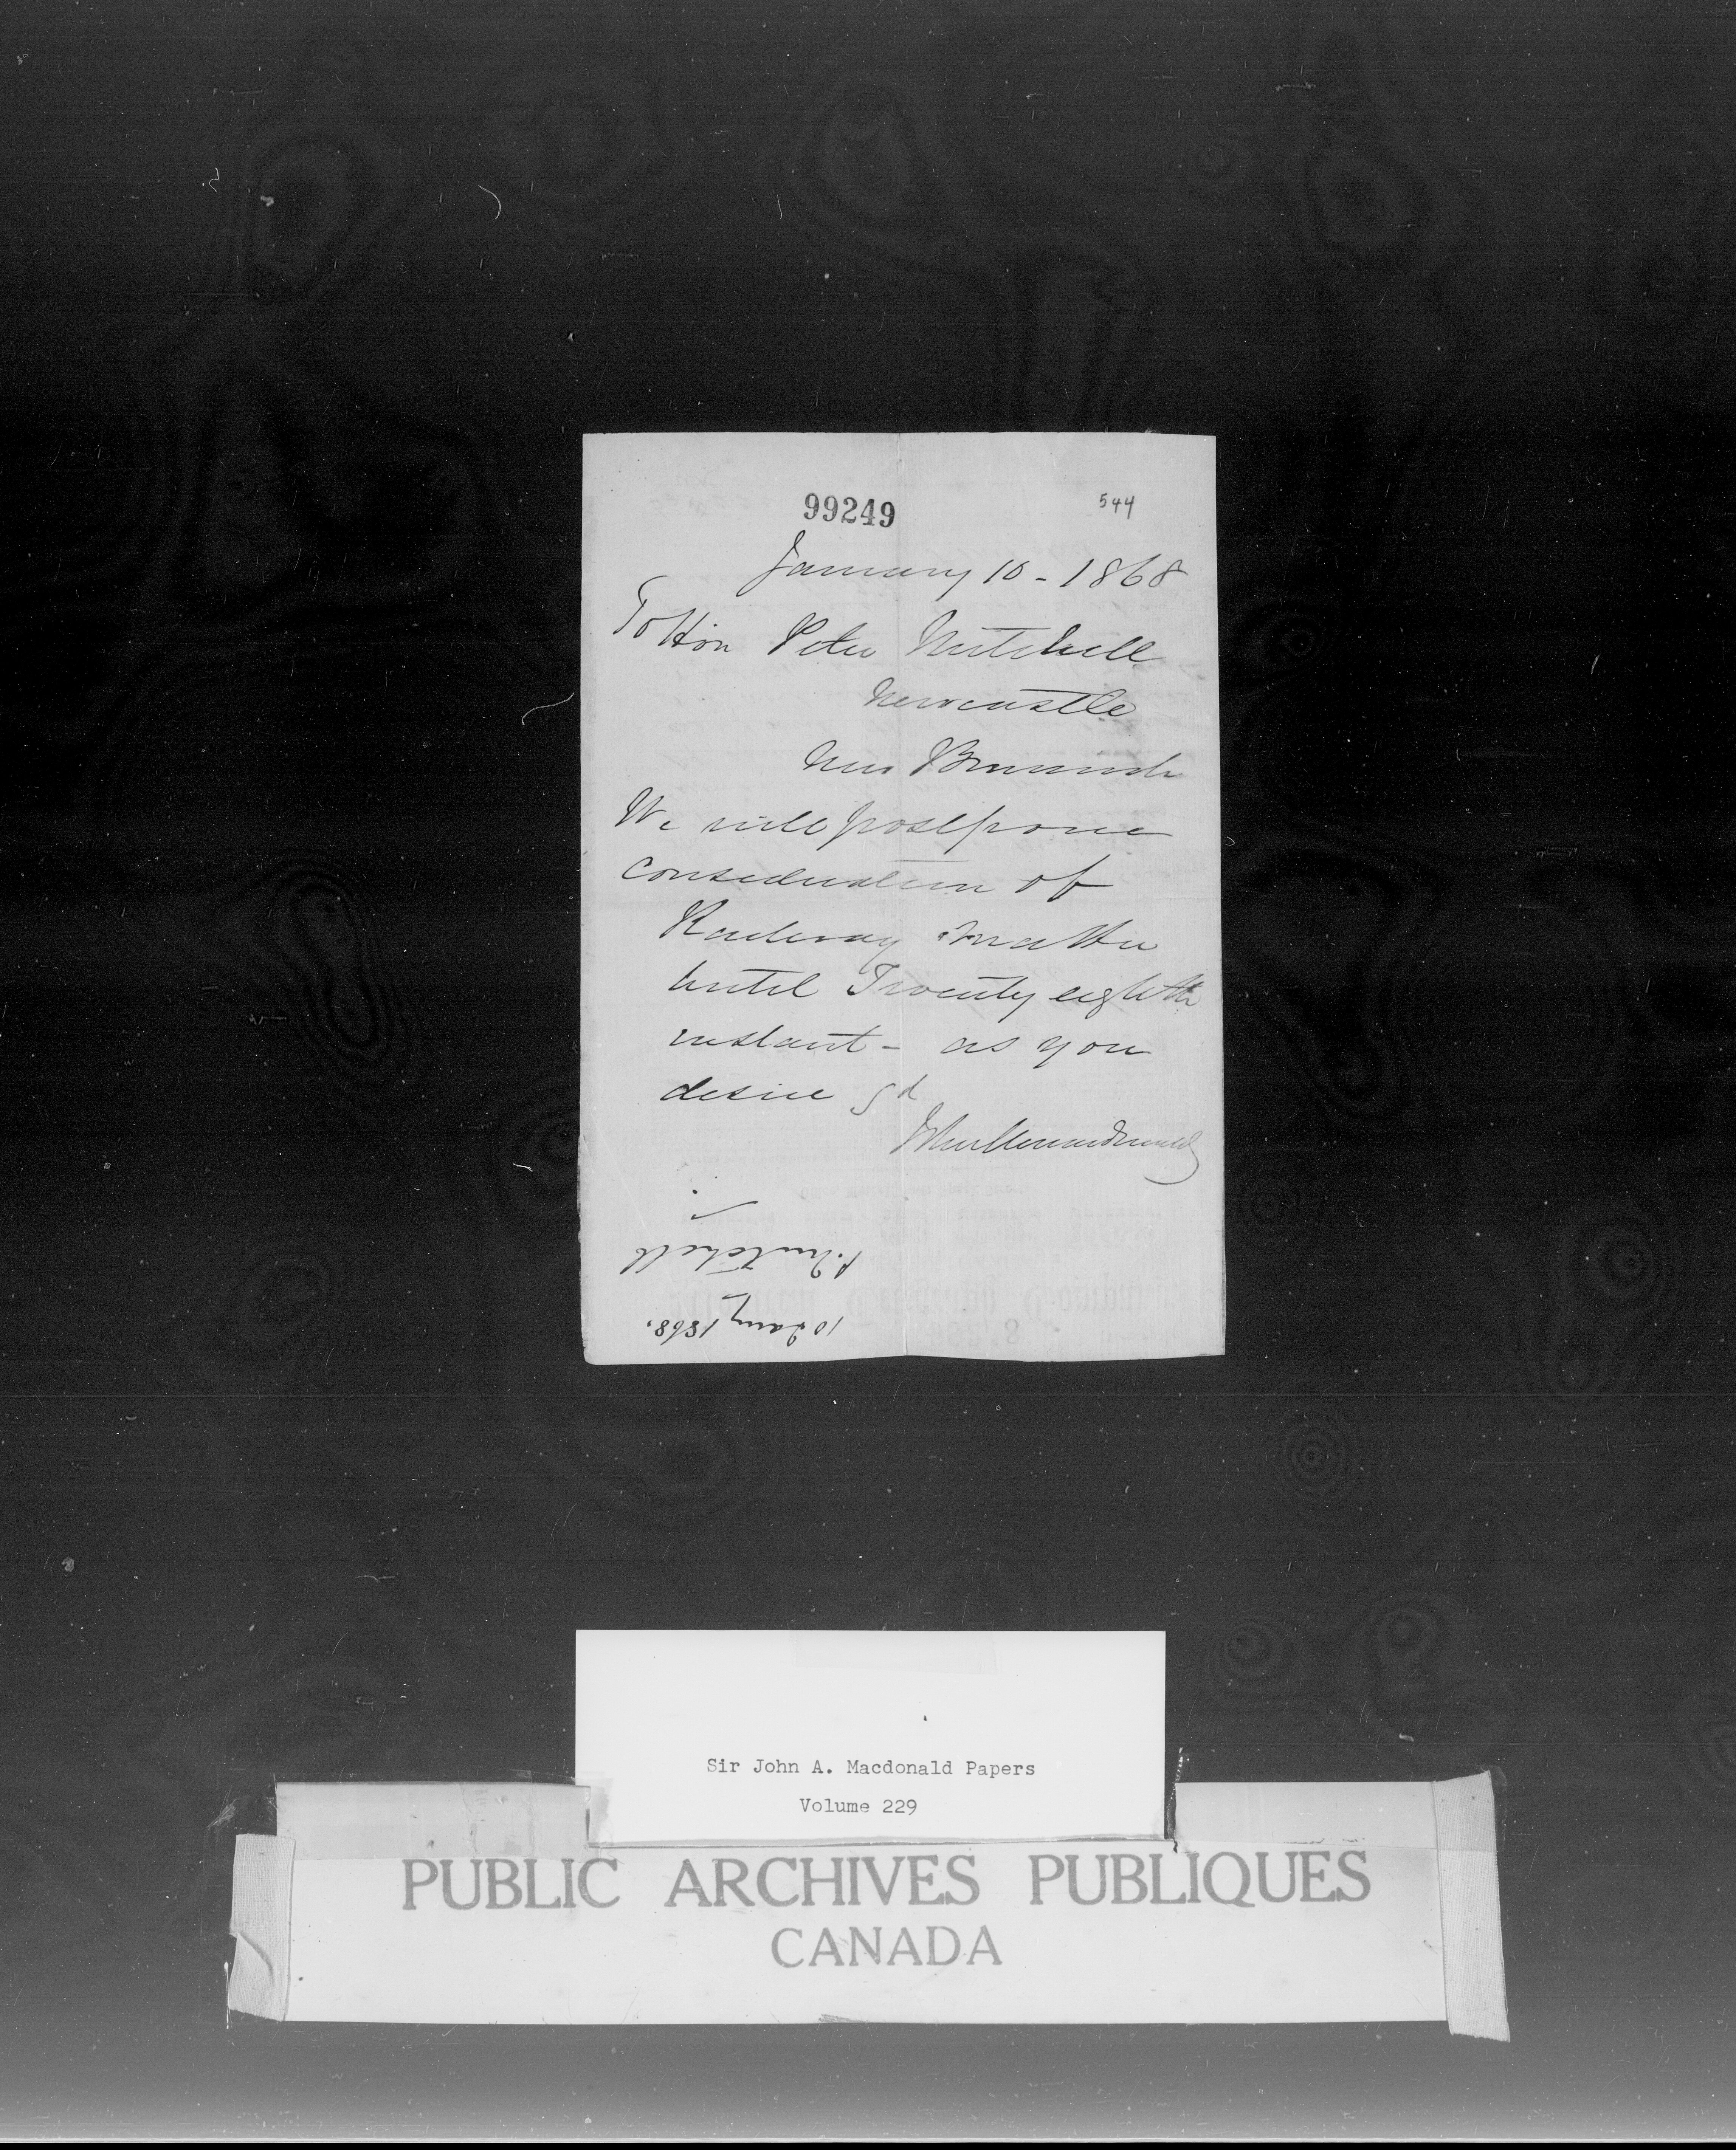 99249
544
January 10 - 1868
To Hon Peter Mitchell
Newcastle
New Brunswick
We will postpone
consideration of
Railway matter
until Twenty eighth
instant - as you
desire Sd
John A Macdonald
P. Mitchell
10 Jany 1868.
Sir John A. Macdonald Papers
Volume 229
PUBLIC ARCHIVES PUBLIQUES
CANADA